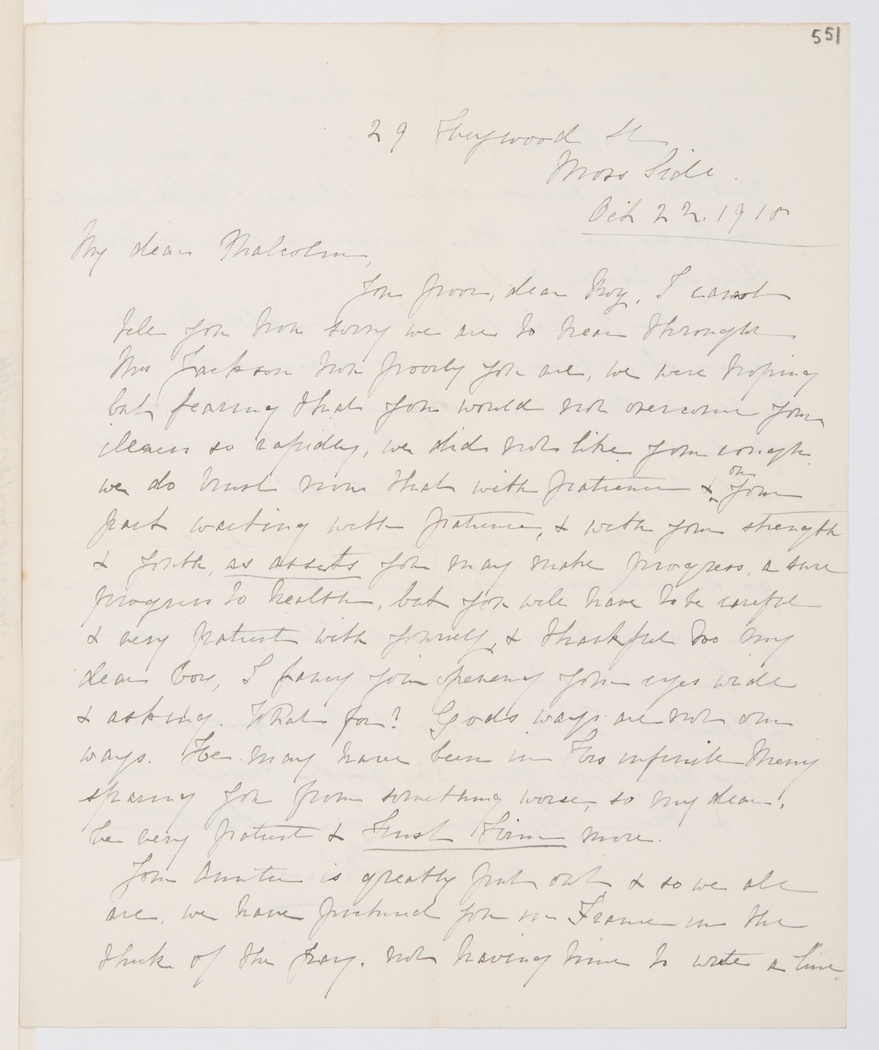 551
29 Heywood St
Moss Side.
Oct 22. 1918
My dear Malcolm,
You poor, dear Boy, I cannot
tell you how sorry we are to hear through
Mrs Jackson how poorly you are, we were hoping
but fearing that you would not overcome your
illness so rapidly, we did not like your cough
we do trust now that with patience & on your
part waiting with patience, & with your strength
& youth, as assets you may make progress, a sure
progress to health, but you will have to be careful
& very patient with yourself, & thankful too my
dear boy, I fancy you opening your eyes wide
& asking. What for? God's ways are not our
ways. He may have been in His infinite Mercy
sparing you from something worse, so my dear,
be very patient & trust Him more.
Your Auntie is greatly put out, & so we all
are, we have pictured you in France in the
thick of the fray. not having time to write a line.